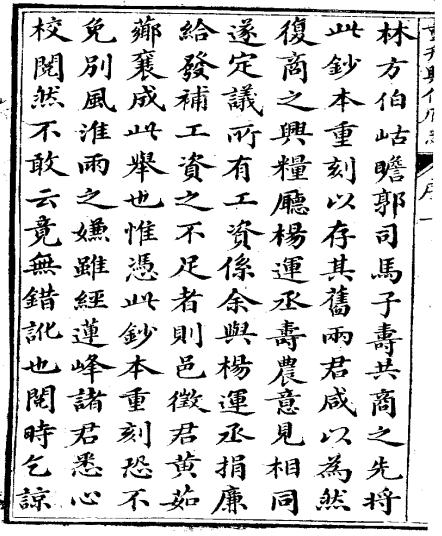 林方伯岵瞻郭司馬子壽共商之先將
此鈔本重刻以存其舊兩君咸以為然
復商之興糧廳楊運丞壽農意見相同
遂定議所有工資係余與楊運丞捐廉
給發補工資之不足者則邑徵君黃茹
薌襄成此舉也惟憑此鈔本重刻恐不
免別風淮雨之嫌雖經蓮峰諸君悉心
校閱然不敢云竟無錯訛也閱時乞諒